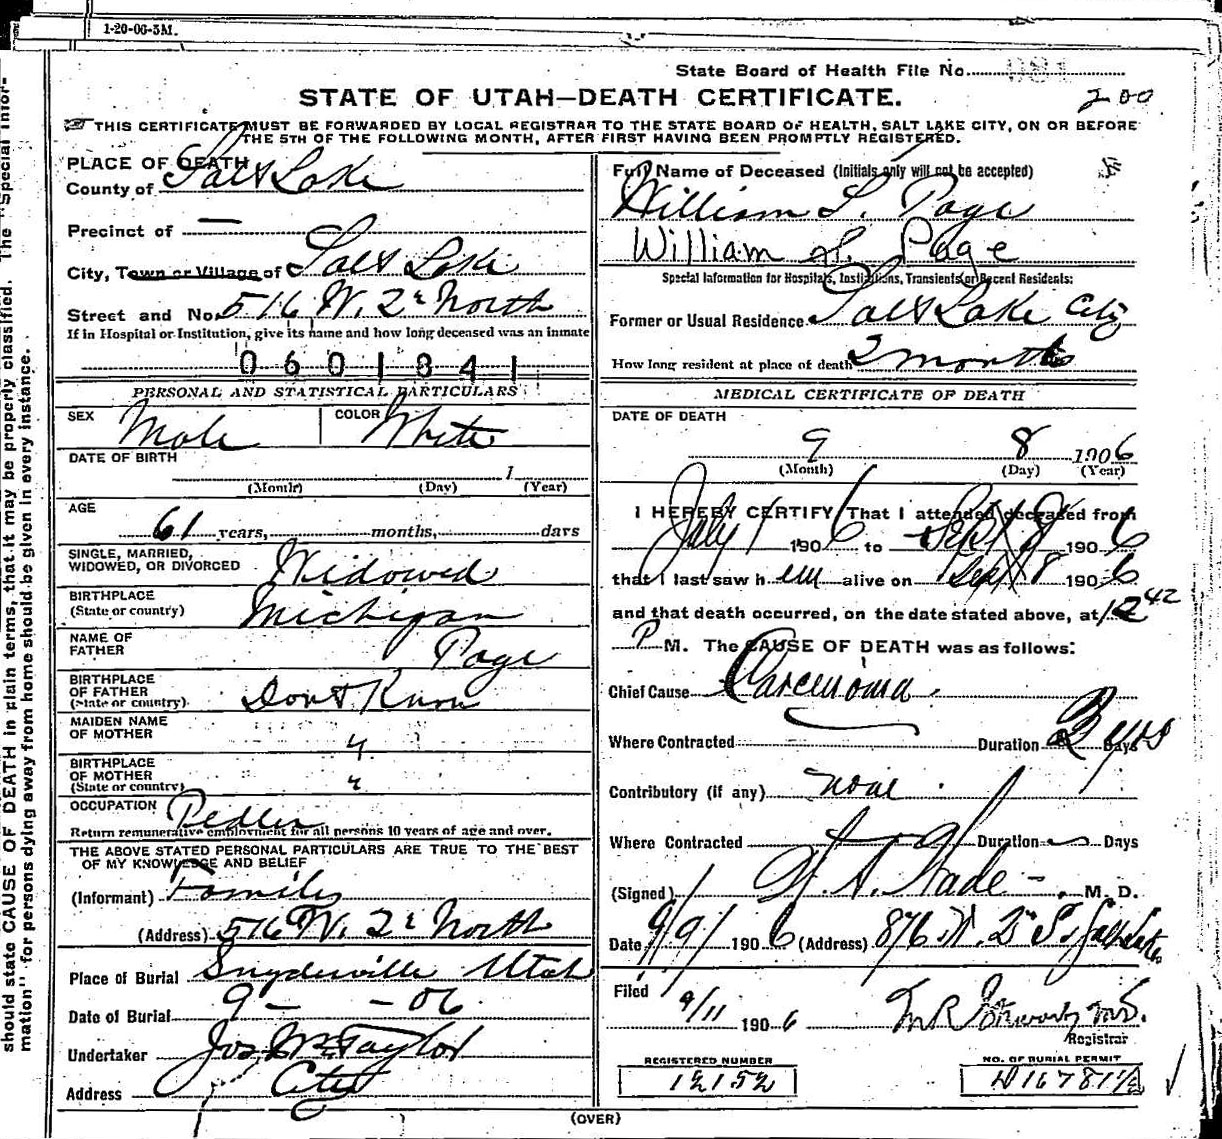 1-20-06-5M.
State Board of Health File No.
STATE OF UTAH—DEATH CERTIFICATE.
200
THIS CERTIFICATE MUST BE FORWARDED BY LOCAL REGISTRAR TO THE STATE BOARD OF HEALTH, SALT LAKE CITY, ON OR BEFORE
THE 5TH OF THE FOLLOWING MONTH, AFTER FIRST HAVING BEEN PROMPTLY REGISTERED.
PLACE OF DEATH
County of Salt Lake
Precinct of —
City, Town or Village of Salt Lake
Street and No. 516 W. 2 North
If in Hospital or Institution, give its name and how long deceased was an inmate
0601841
PERSONAL AND STATISTICAL PARTICULARS
SEX Male COLOR White
DATE OF BIRTH
1
(Month) (Day) (Year)
AGE
61 years, months, days
SINGLE, MARRIED,
WIDOWED, OR DIVORCED Widowed
BIRTHPLACE
(State or country) Michigan
NAME OF
FATHER Page
BIRTHPLACE
OF FATHER
(State or country) Dont Know
MAIDEN NAME
OF MOTHER "
BIRTHPLACE
OF MOTHER
(State or country) "
OCCUPATION Pedler
Return remunerative employment for all persons 10 years of age and over.
THE ABOVE STATED PERSONAL PARTICULARS ARE TRUE TO THE BEST
OF MY KNOWLEDGE AND BELIEF
(Informant) Family
(Address) 516 W. 2 North
Place of Burial Snyderville Utah
Date of Burial 9 - - 06
Undertaker Jos. Wm Taylor
Address City
Full Name of Deceased (Initials only will not be accepted)
William L. Page
William L. Page
Special Information for Hospitals, Institutions, Transients or Recent Residents:
Former or Usual Residence Salt Lake City
How long resident at place of death 2 months
MEDICAL CERTIFICATE OF DEATH
DATE OF DEATH
9 8 1906
(Month) (Day) (Year)
I HEREBY CERTIFY That I attended deceased from
July 1 1906 to Sept 8 1906
that I last saw him alive on Sept 8 1906
and that death occurred, on the date stated above, at 12 42
P M. The CAUSE OF DEATH was as follows:
Chief Cause Carcenoma.
Where Contracted Duration yrs Days
Contributory (if any) none.
Where Contracted Duration Days
(Signed) Wade M. D.
Date 9/9/ 1906 (Address) 876 W. 2 S. Salt Lake
Filed
9/11 1906
Registrar
REGISTERED NUMBER
12152
NO. OF BURIAL PERMIT
(OVER)
should state CAUSE OF DEATH in plain terms, that it may be properly classified. The "Special Infor-
mation" for persons dying away from home should be given in every instance.